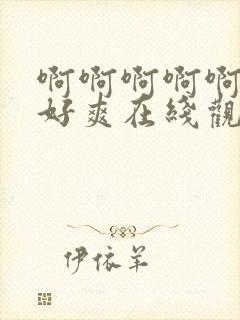 啊啊啊啊啊
好爽在綫觀
伊依羊